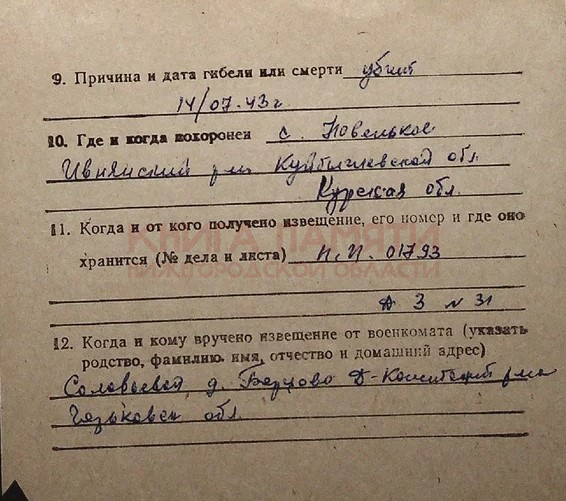 9. Причина и дата гибели или смерти убит
14/07.43г
10. Где и когда похоронен с. Новенькое
Ивнянский р-н Куйбышевской обл
Курская обл.
11. Когда и от кого получено извещение, его номер и где оно
КНИГА ПАМЯТИ
хранится (№ дела и листа) п.п. 01793
НИЖЕГОРОДСКОЙ ОБЛАСТИ
д 3 л 31
12. Когда и кому вручено извещение от военкомата (указать
родство, фамилию, имя, отчество и домашний адрес)
Соловьевой д. р-на
обл.